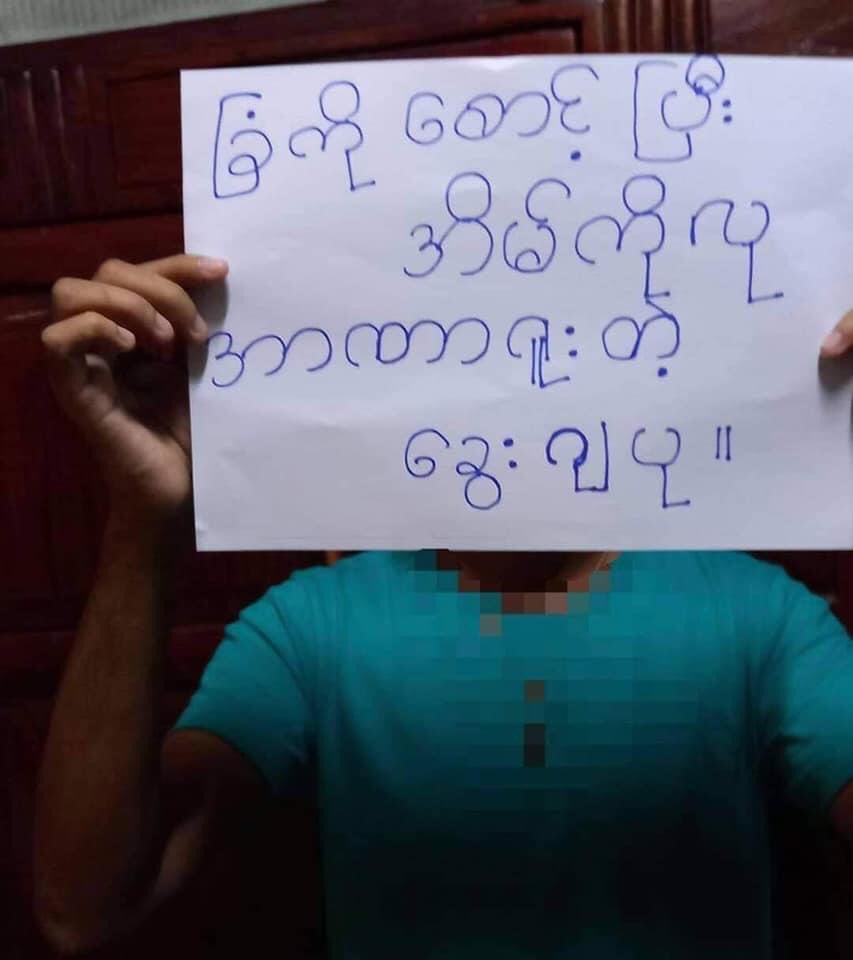 ခြံကို စောင့် ပြီး
အိမ်ကိုလု
အာဏာရူးတဲ့
ခွေးဂျပု။